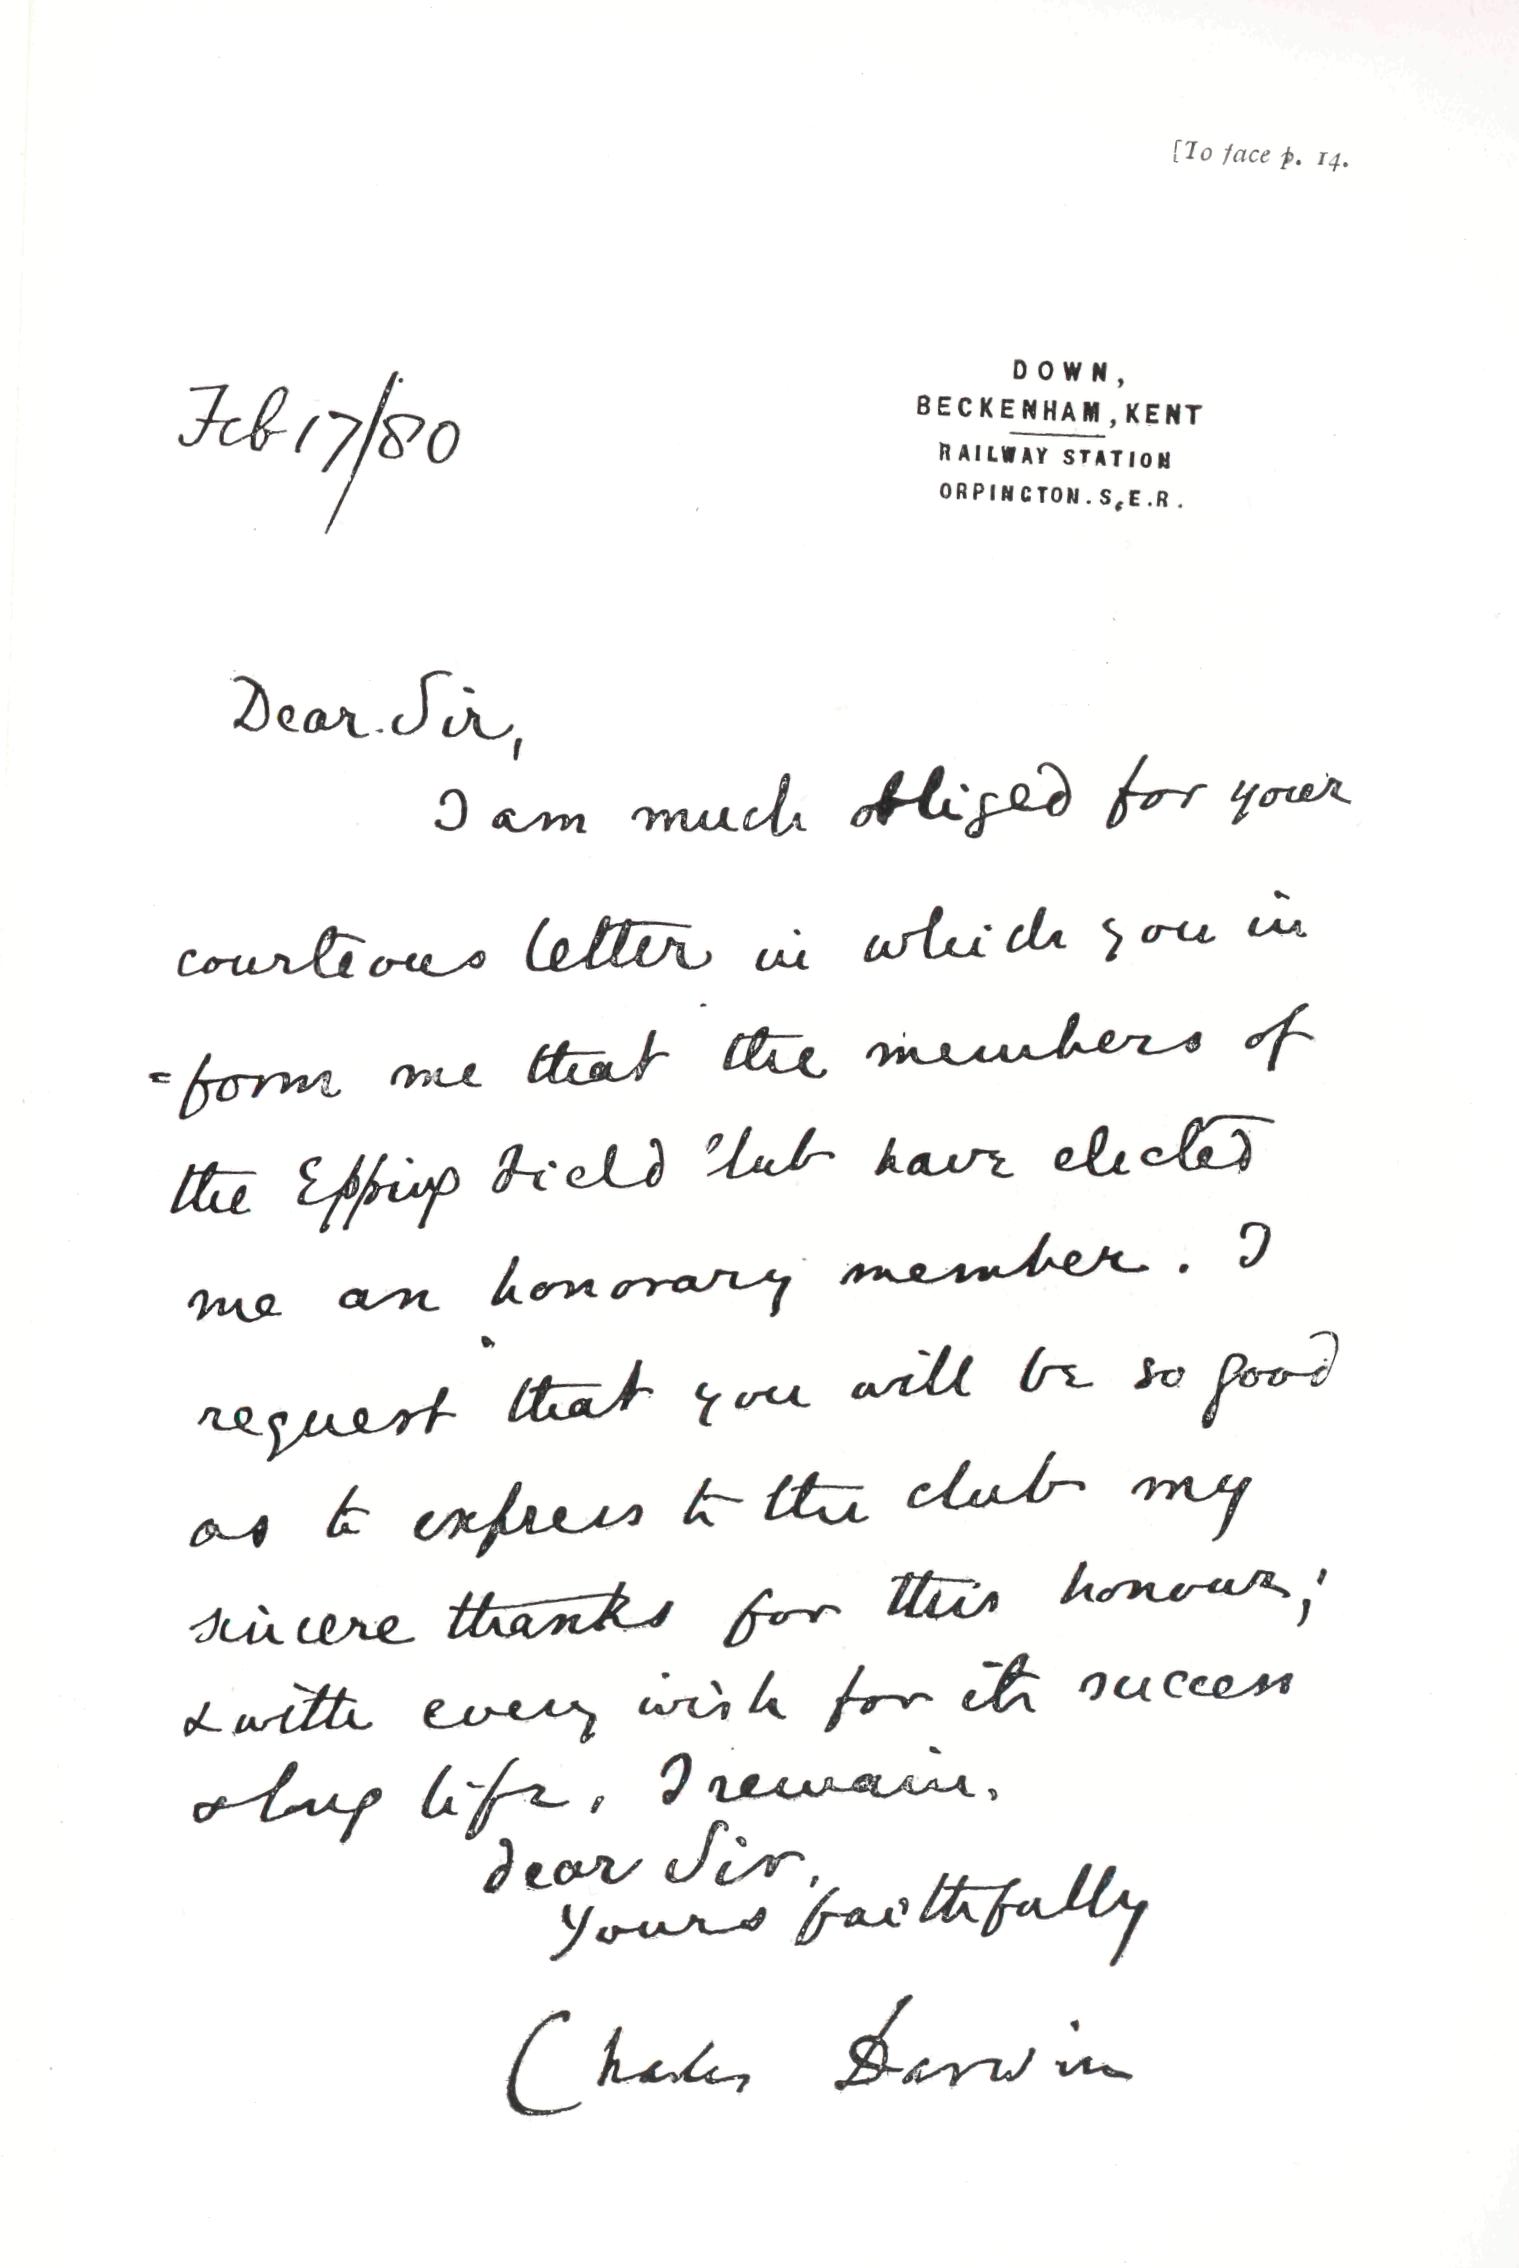 [To face p. 14.
Feb 17/80
DOWN,
BECKENHAM, KENT
RAILWAY STATION
ORPINGTON. S.E.R.
Dear Sir,
I am much obliged for your
courteous letter in which you in
=form me that the members of
the Epping Field Club have elected
me an honorary member. I
request that you will be so good
as to express to the club my
sincere thanks for this honour;
& with every wish for its success
& long life, I remain.
dear Sir,
Yours faithfully
Charles Darwin